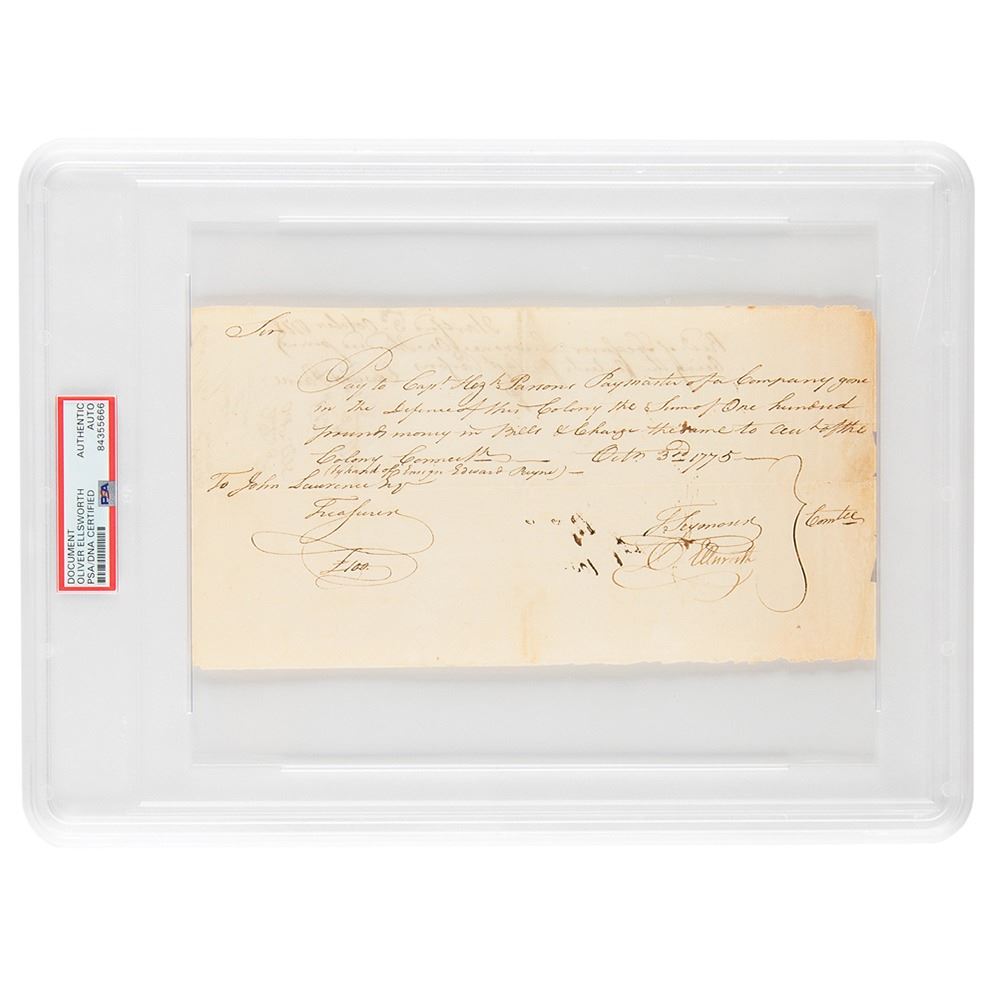 DOCUMENT AUTHENTIC
OLIVER ELLSWORTH AUTO
PSA/DNA CERTIFIED 84355666
PSA
Sir
Pay to Capt Hezh Parsons Paymaster of a Company gone
in the Defence of this Colony the Sum of One hundred
pounds money in Bills & Charge the same to acct of the
Colony Connectt Octr 3rd 1775
(by hand of Ensign Edward Payne)
To John Lawrence Esqr
Treasurer
£100.
T Seymour
O. Ellsworth
Comtee